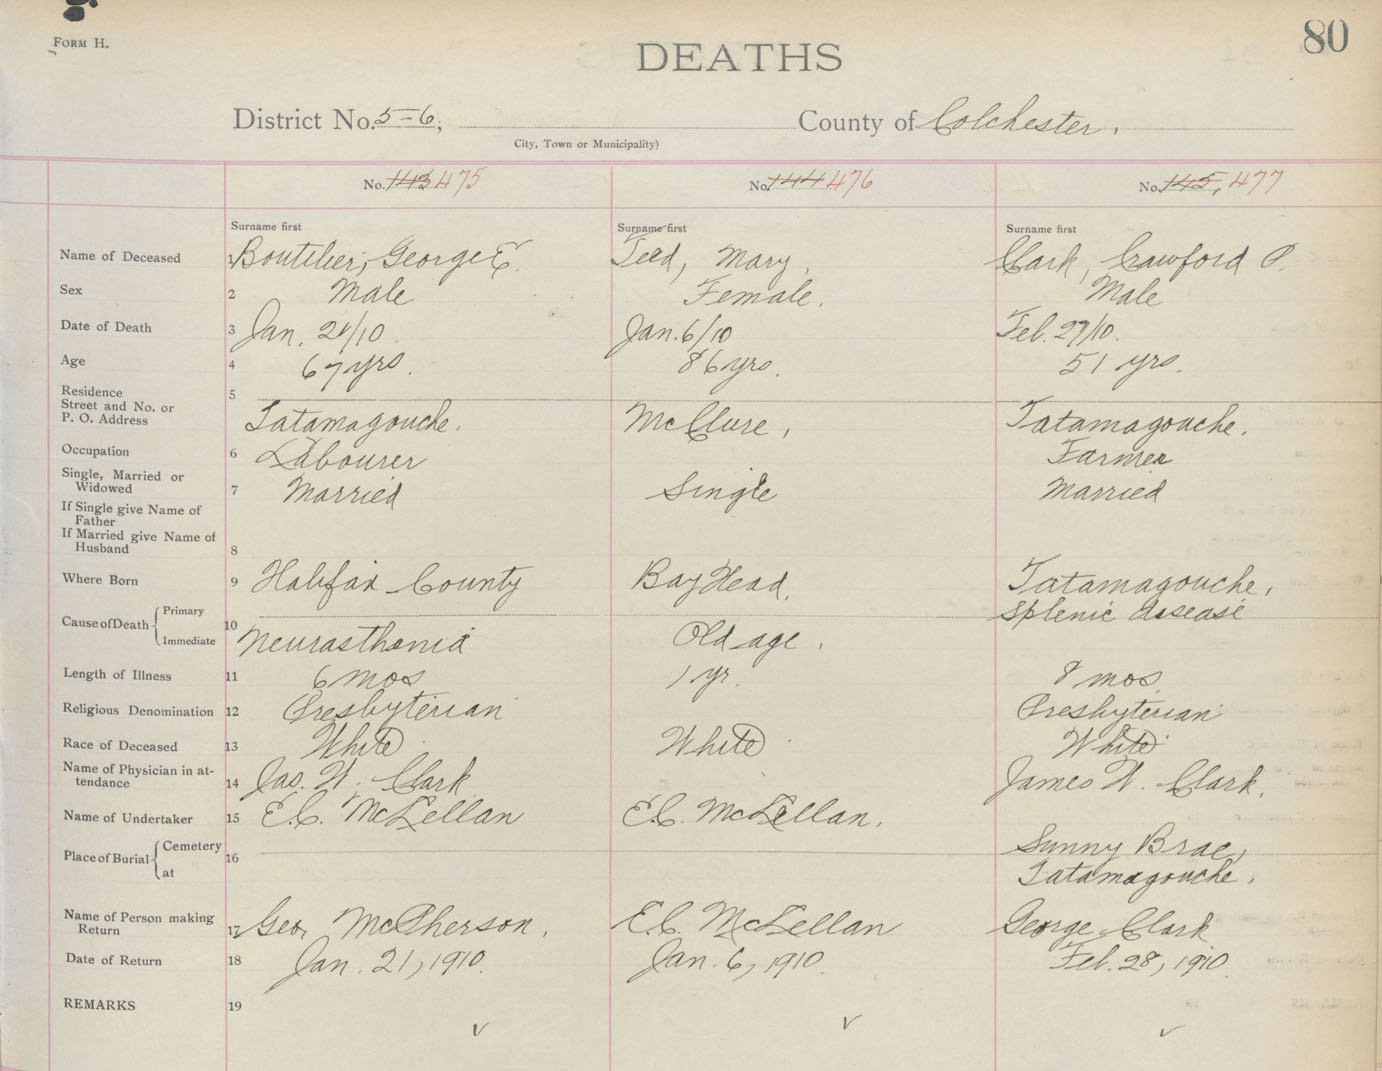 FORM H.
80
DEATHS
District No. 5-6, County of Colchester.
City, Town or Municipality)
No. 143 475 No. 144 476 No. 145, 477
Surname first Surname first Surname first
Name of Deceased 1 Boutilier, George E. Teed, Mary, Clark, Crawford P.
Sex 2 Male Female. Male
Date of Death 3 Jan. 21/10. Jan. 6/10 Feb. 27/10.
Age 4 67 yrs. 86 yrs. 51 yrs.
Residence 5
Street and No. or
P. O. Address Tatamagouche. McClure, Tatamagouche.
Occupation 6 Labourer Farmer
Single, Married or
Widowed 7 Married Single Married
If Single give Name of
Father
If Married give Name of
Husband 8
Where Born 9 Halifax County Bay Head. Tatamagouche,
Cause of Death Primary Splenic disease
10 Immediate Neurasthenia Old age.
Length of Illness 11 6 mos 1 yr. 8 mos
Religious Denomination 12 Presbyterian Presbyterian
Race of Deceased 13 White White White
Name of Physician in at-
tendance 14 Jas. W. Clark James W. Clark.
Name of Undertaker 15 E.C. McLellan E.C. McLellan.
Place of Burial Cemetery 16 Sunny Brae,
at Tatamagouche.
Name of Person making
Return 17 Geo. McPherson. E.C. McLellan George Clark
Date of Return 18 Jan. 21, 1910. Jan. 6, 1910. Feb. 28, 1910.
REMARKS 19